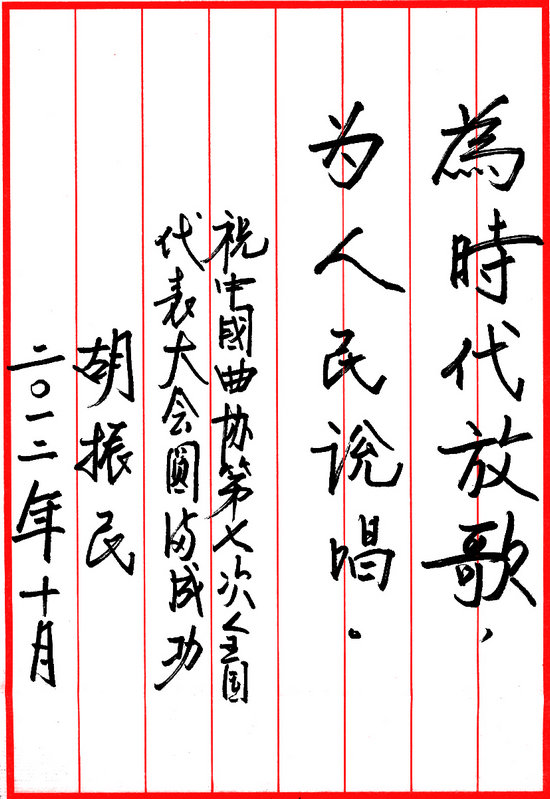 為時代放歌，
为人民说唱。
祝中國曲协第七次全国
代表大会圓满成功
胡振民
二〇一二年十月